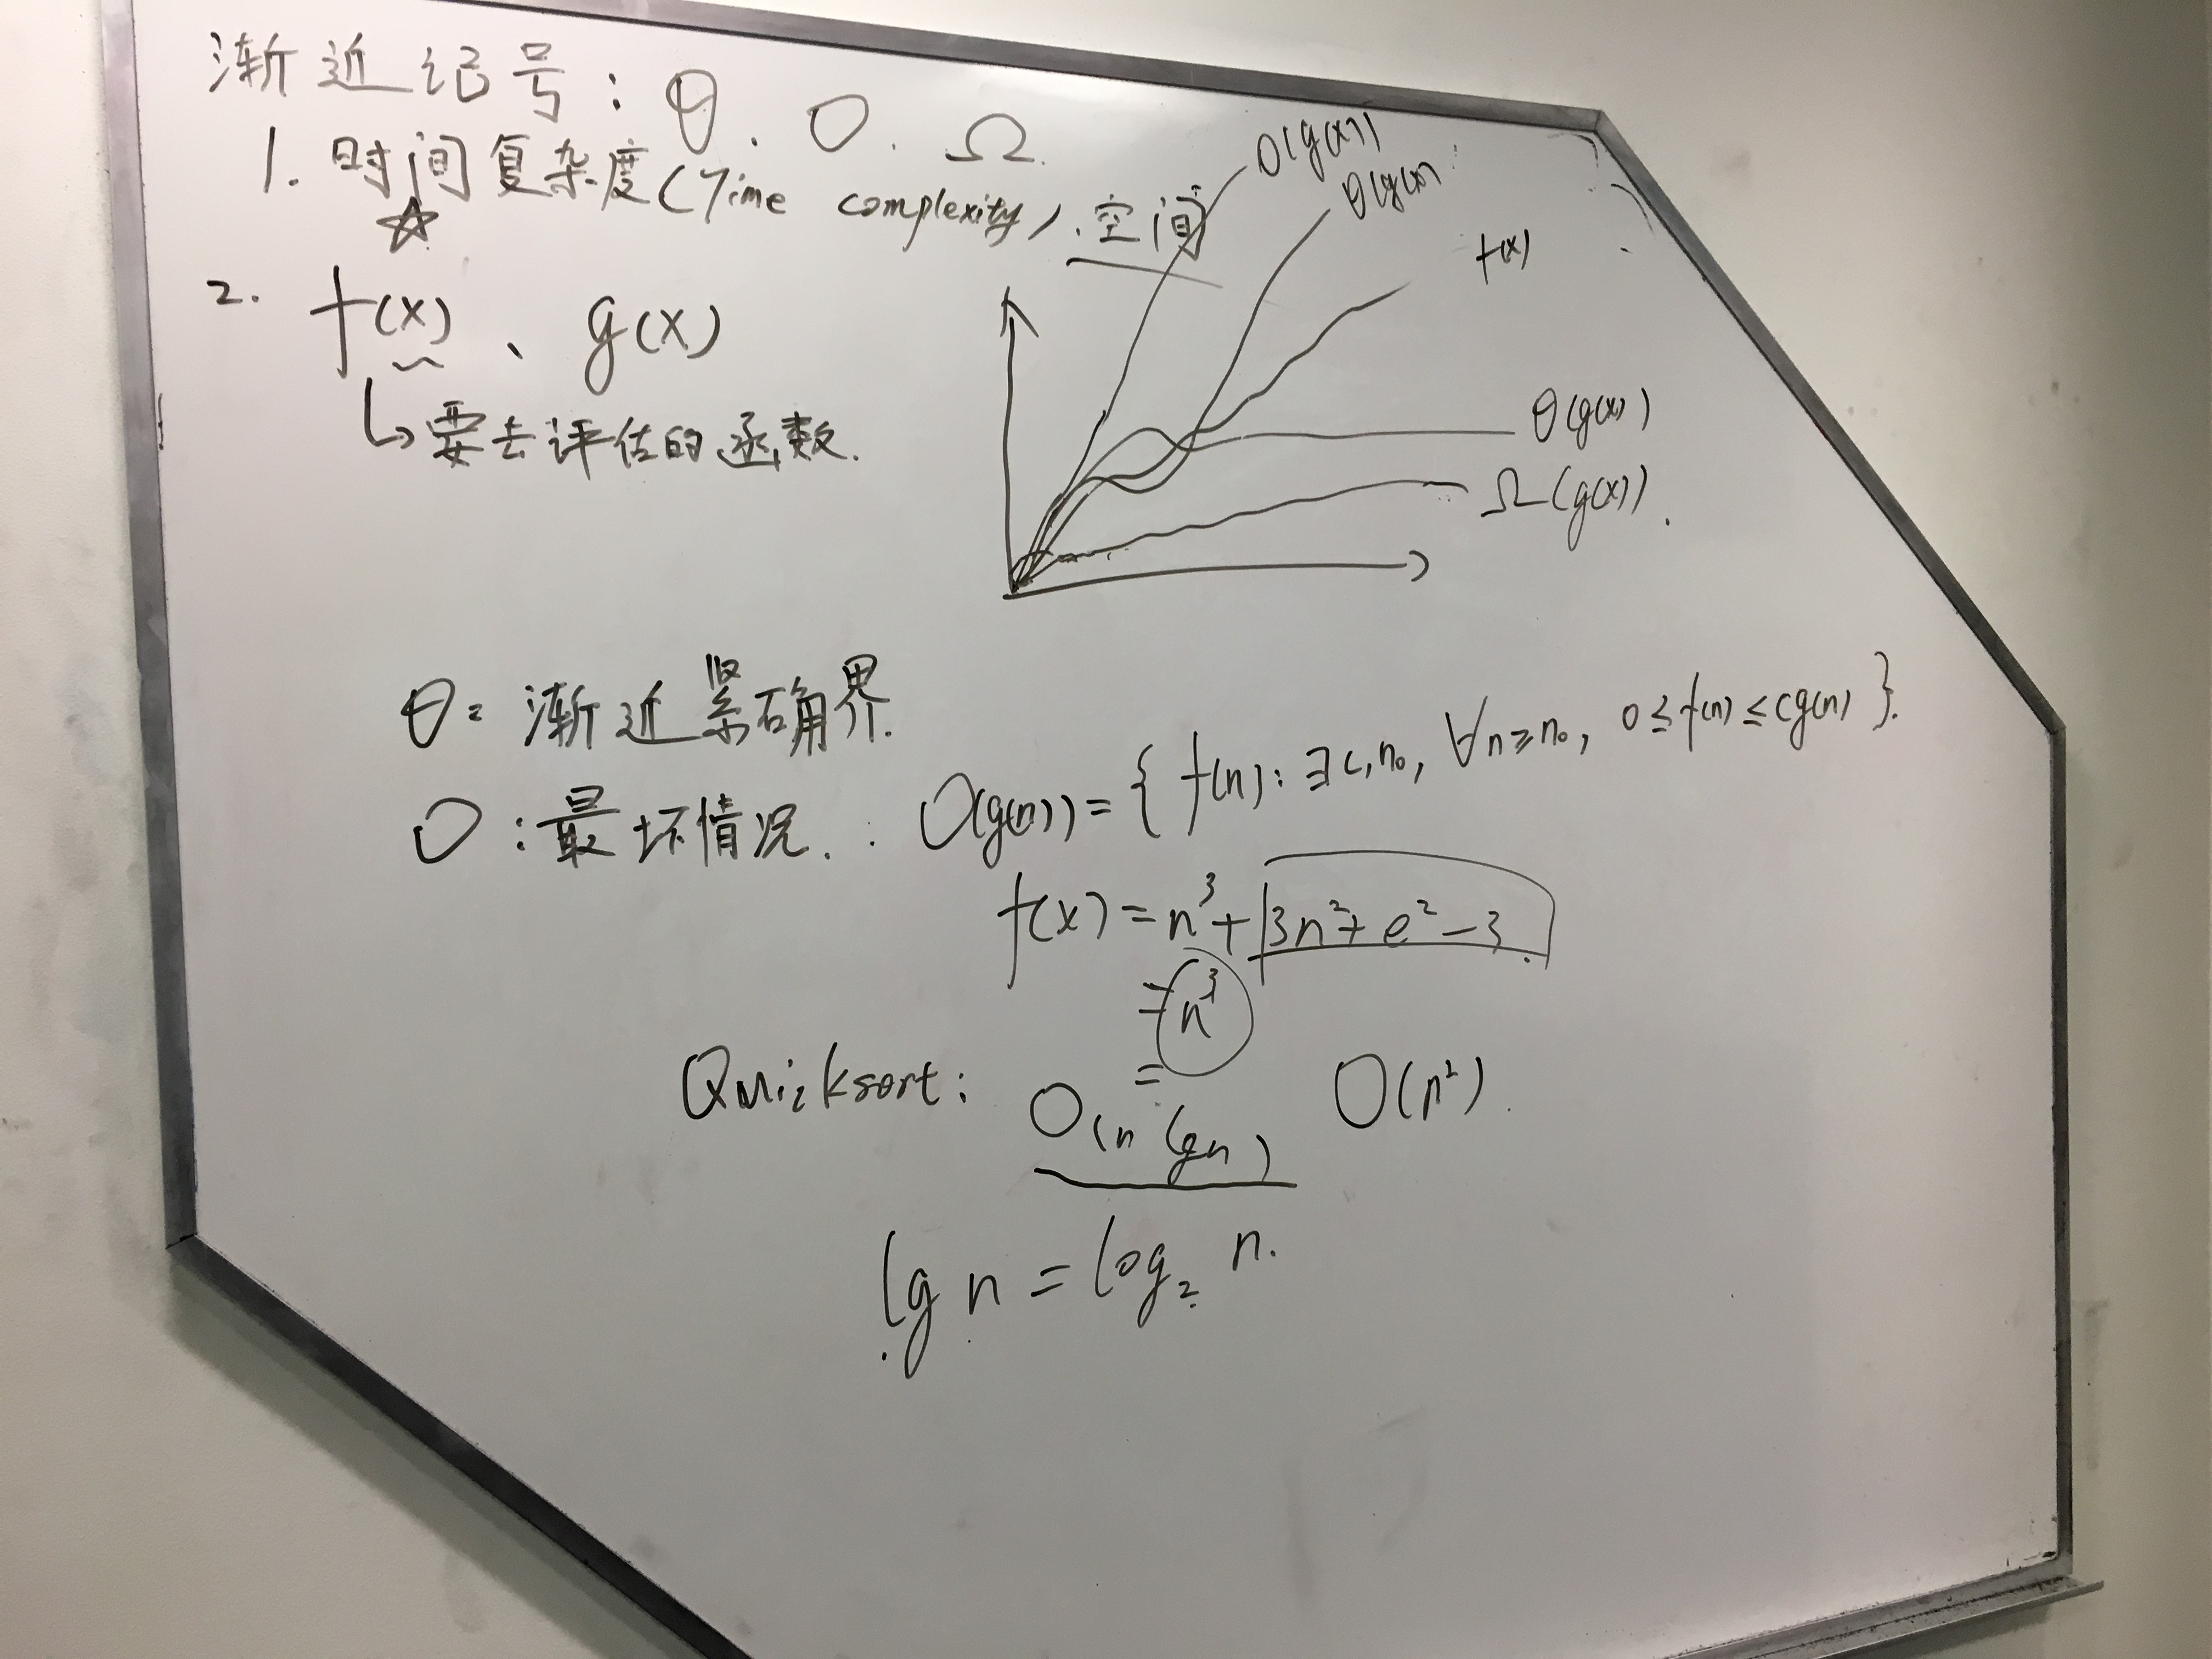 渐近记号：θ. O. Ω.
1. 时间复杂度(Time complexity)、空间
☆
2. f(x)、g(x)
↳要去评估的函数.
O(g(x))
θ(g(x))
f(x)
θ(g(x))
Ω(g(x)).
θ= 渐近紧确界.
O：最坏情况. O(g(n))={ f(n): ∃ c, n₀, ∀n≥n₀, 0≤f(n)≤cg(n) }.
f(x)=n³+3n²+e²-3.
=n³
=
Quicksort: O(n lgn) O(n²).
lg n = log₂ n.